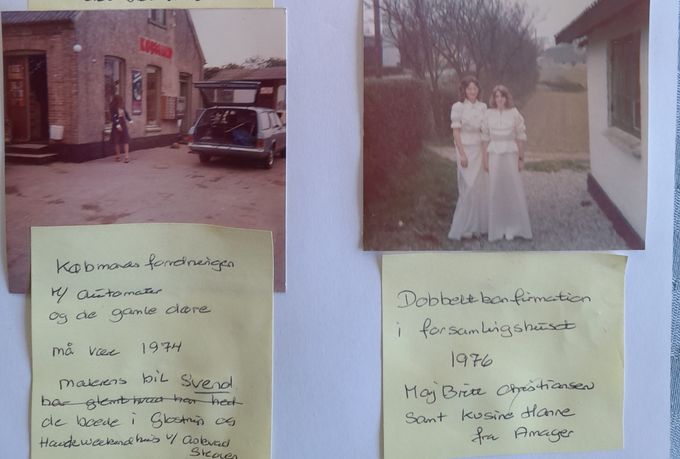 Købmandsforretningen
m/ automater
og de gamle døre
må være 1974
malerens bil Svend
har glemt hvad han hed
de boede i Glostrup og
Havde weekendhus v/
Skoven
Dobbeltkonfirmation
i forsamlingshuset
1976
Maj Britt Christiansen
Samt Kusine Hanne
fra Amager